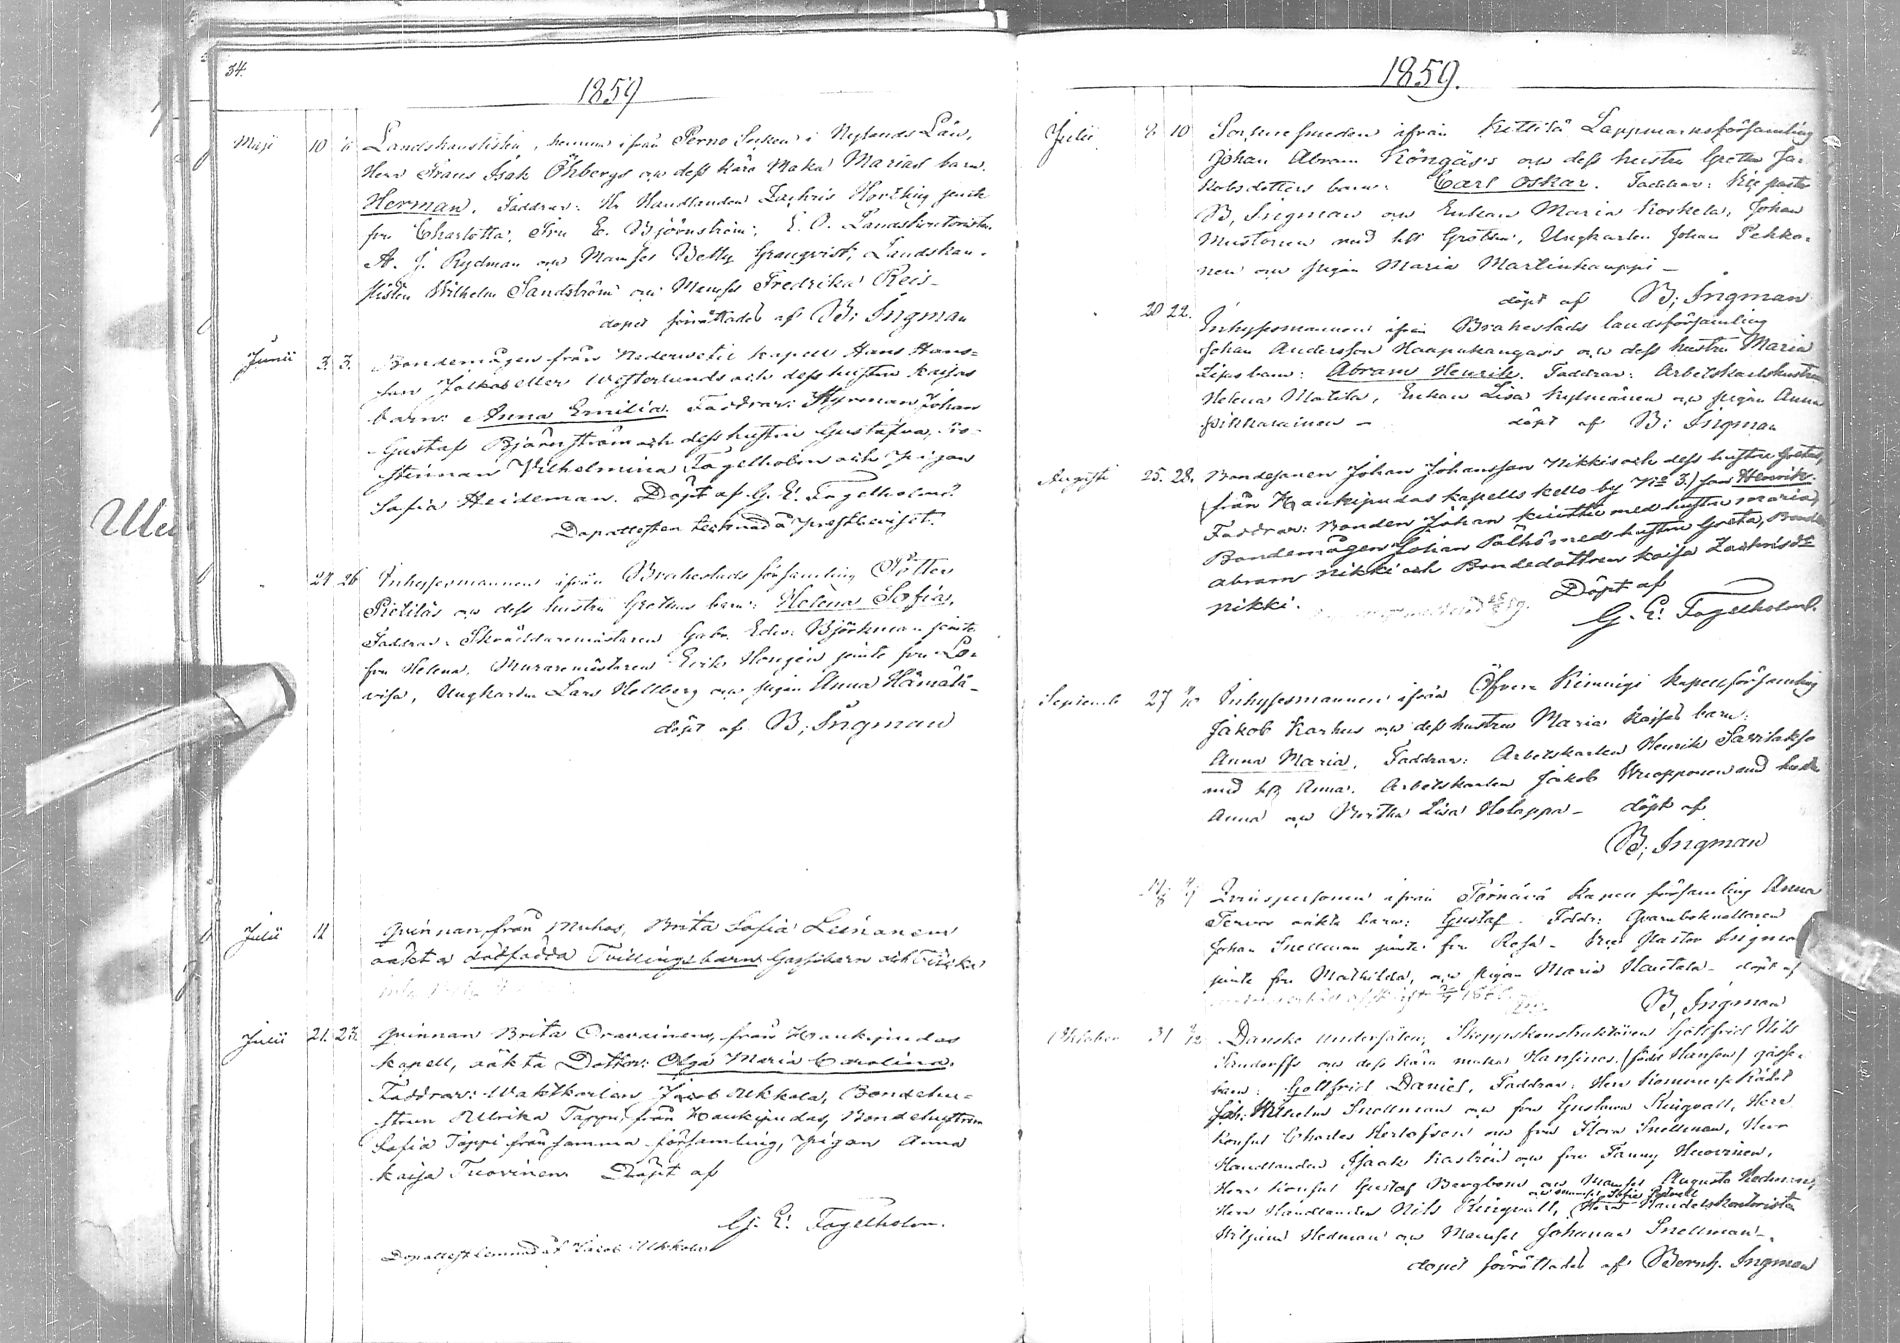 34.
1859
Maji 10 Landskanslisten, hemma ifrån Perno Socken i Nylands Län,
Herr Frans Isak Öhbergs och dess kära Maka Marias barn.
Herman. Faddrar: Hr Handlanden Zachris Hortling jemte
fru Charlotta, Fru E. Björnström, E. O. Landskontoristen
A. J. Rydman och Mamsel Betty Granqvist, Landskan-
slisten Wilhelm Sandström och Mamsel Fredrika Reis-
dopet förrättades af B; Ingman
Junii 3. 3. Bondemågen från Nederwetil kapell Hans Hans-
son Jolkas eller Westerlunds och dess hustru Kajsas
barn: Anna Emilia. Faddrar: Styrman Johan
Gustaf Björnström och dess hustru Gustafva,
Wilhelmina Fogelholm och pigan
Sofia Heideman. Döpt af G. E. Fogelholm.
Dopattesten tecknad å prestbeviset.
24 26 Inhysesmannen ifrån Brahestads församling Petter
Pietiläs och dess hustru Grethas barn: Helena Sofia.
Faddrar: Skräddaremästaren Gabr. Edv. Björkman jemte
fru Helena, Muraremästaren Erik Hongén jemte fru Lo-
visa, Ungkarlen Lars Hellberg och pigan Anna Hämälä-
döpt af B; Ingman
Julii 11 Qvinnan från Muhos, Brita Sofia Leinonens
oäkta dödfödda Tvillingsbarn Gossebarn och Flicka
Julii 21. 23. Qvinnan Brita Oravainens, från Haukipudas
kapell, oäkta Dotter: Olga Maria Carolina.
Faddrar: Waktkarlen Jacob Ukkola, Bondehu-
strun Ulrika Tappi från Haukipudas, Bondehustrun
Sofia Tappi från samma församling, pigan Anna
Kaisa Tuovinen. Döpt af
G. E. Fogelholm.
Dopattest lemnad åt Jacob Ukkola
1859.
Julii 8 10 Sockne smeden ifrån Kittilä Lappmarksförsamling
Johan Abram Köngäs's och dess hustru Gretha Ja-
kobsdotters barn: Carl Oskar. Faddrar: Vice pastor
B, Ingman och Enkan Maria Koskela, Johan
Mustonen med hst Gretha, Ungkarlen Johan Pekko-
nen och pigan Maria Martinkauppi –
döpt af B; Ingman
20 22. Inhysesmannen ifrån Brahestads landsförsamling
Johan Andersson Haapakangas's och dess hustru Maria
Lisas barn: Abram Henrik. Faddrar: Arbetskarlshustrun
Helena Matila, Enkan Lisa Kylmänen och pigan Anna
Pikkarainen – döpt af B; Ingman
Augusti 25. 28. Bondesonen Johan Johansson Nikkis och dess hustru Gretas,
(från Haukipudas kapells Kello by No 3.) son Henrik.
Faddrar: Bonden Johan Kiiskilä med hustru Maria,
Bondemågen Johan Pälhö med hustru Greta, Bonden
Abram Nikki och Bondedottren Kaisa Zachrisdr
Nikki. Döpt af
G. E. Fogelholm.
September 27 Inhysesmannen ifrån Öfver Kiminge Kapellförsamling
Jakob Karhus och dess hustru Maria Kaisas barn:
Anna Maria. Faddrar: Arbetskarlen Henrik Savilakso
med h. Anna, Arbetskarlen Jakob med hustru
Anna och Bertha Lisa Holappa – döpt af
B; Ingman
Qvinspersonen ifrån Törnävä Kapell församling Anna
Tervos oäkta barn: Gustaf. Faddr: Qvarnbokhållaren
Johan Snellman jemte fru Rosa – Vice Pastor Ingman
jemte fru Mathilda, och pigan Maria Hautala – döpt af
B, Ingman
Oktober 31 Danske Undersåten, Skeppskonstruktören Gottfrid Nils
Sandorffs och dess kära maka Hansines (född Hansen) gosse-
barn: Gottfrid Daniel, Faddrar: Herr Kommerse Rådet
Joh. Wilhelm Snellman och fru Gustava Ringvall, Herr
Konsul Charles Kerlefsen och fru Flora Snellman, Herr
Handlanden Isaak Kastrén och fru Fanny Huovinen,
Herr Konsul Gustaf Bergbom och Mamsel Augusta Hedman,
och mamsel Sofie
Herr Handlanden Nils Ringvall, Herr Handelskontoristen
Wiljam Hedman och Mamsel Johanna Snellman –
dopet förrättades af Bernh. Ingman